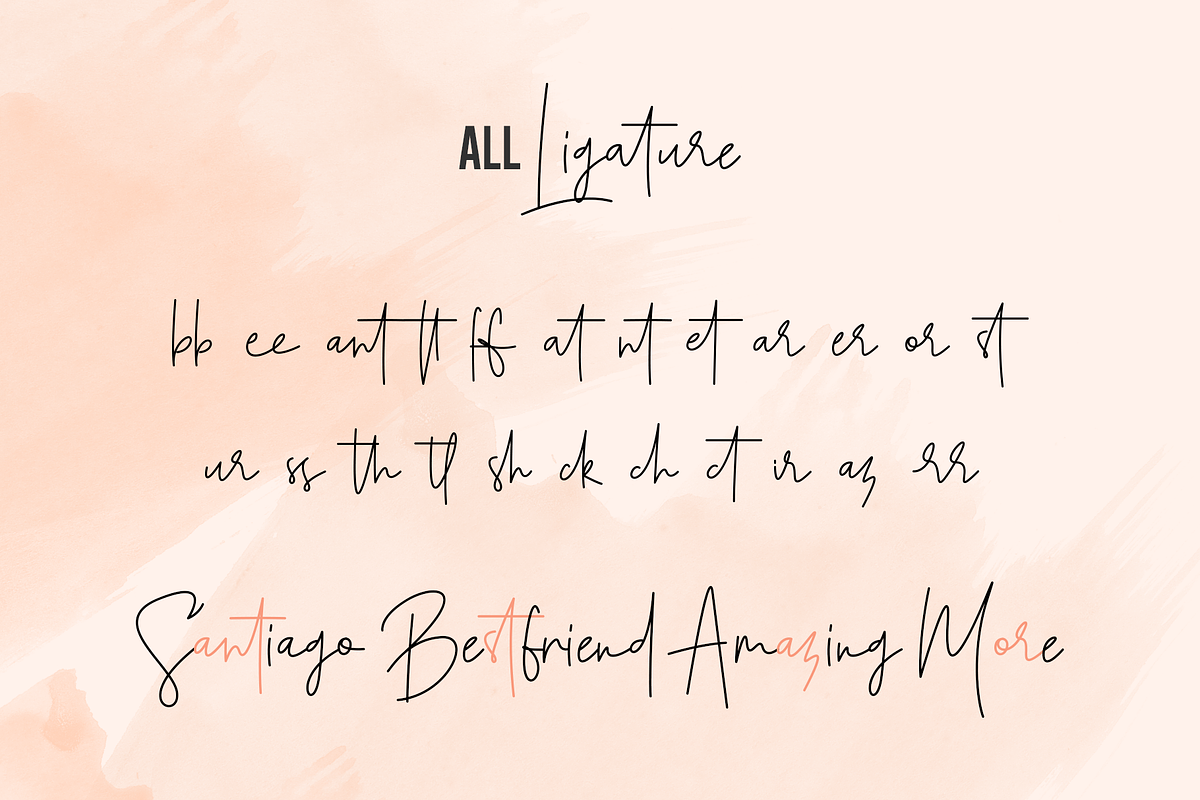 ALL Ligature
bb ee ant tt ff at nt et ar er or st
ur ss th tl sh ck ch ct ir az rr
Santiago Bestfriend Amazing More